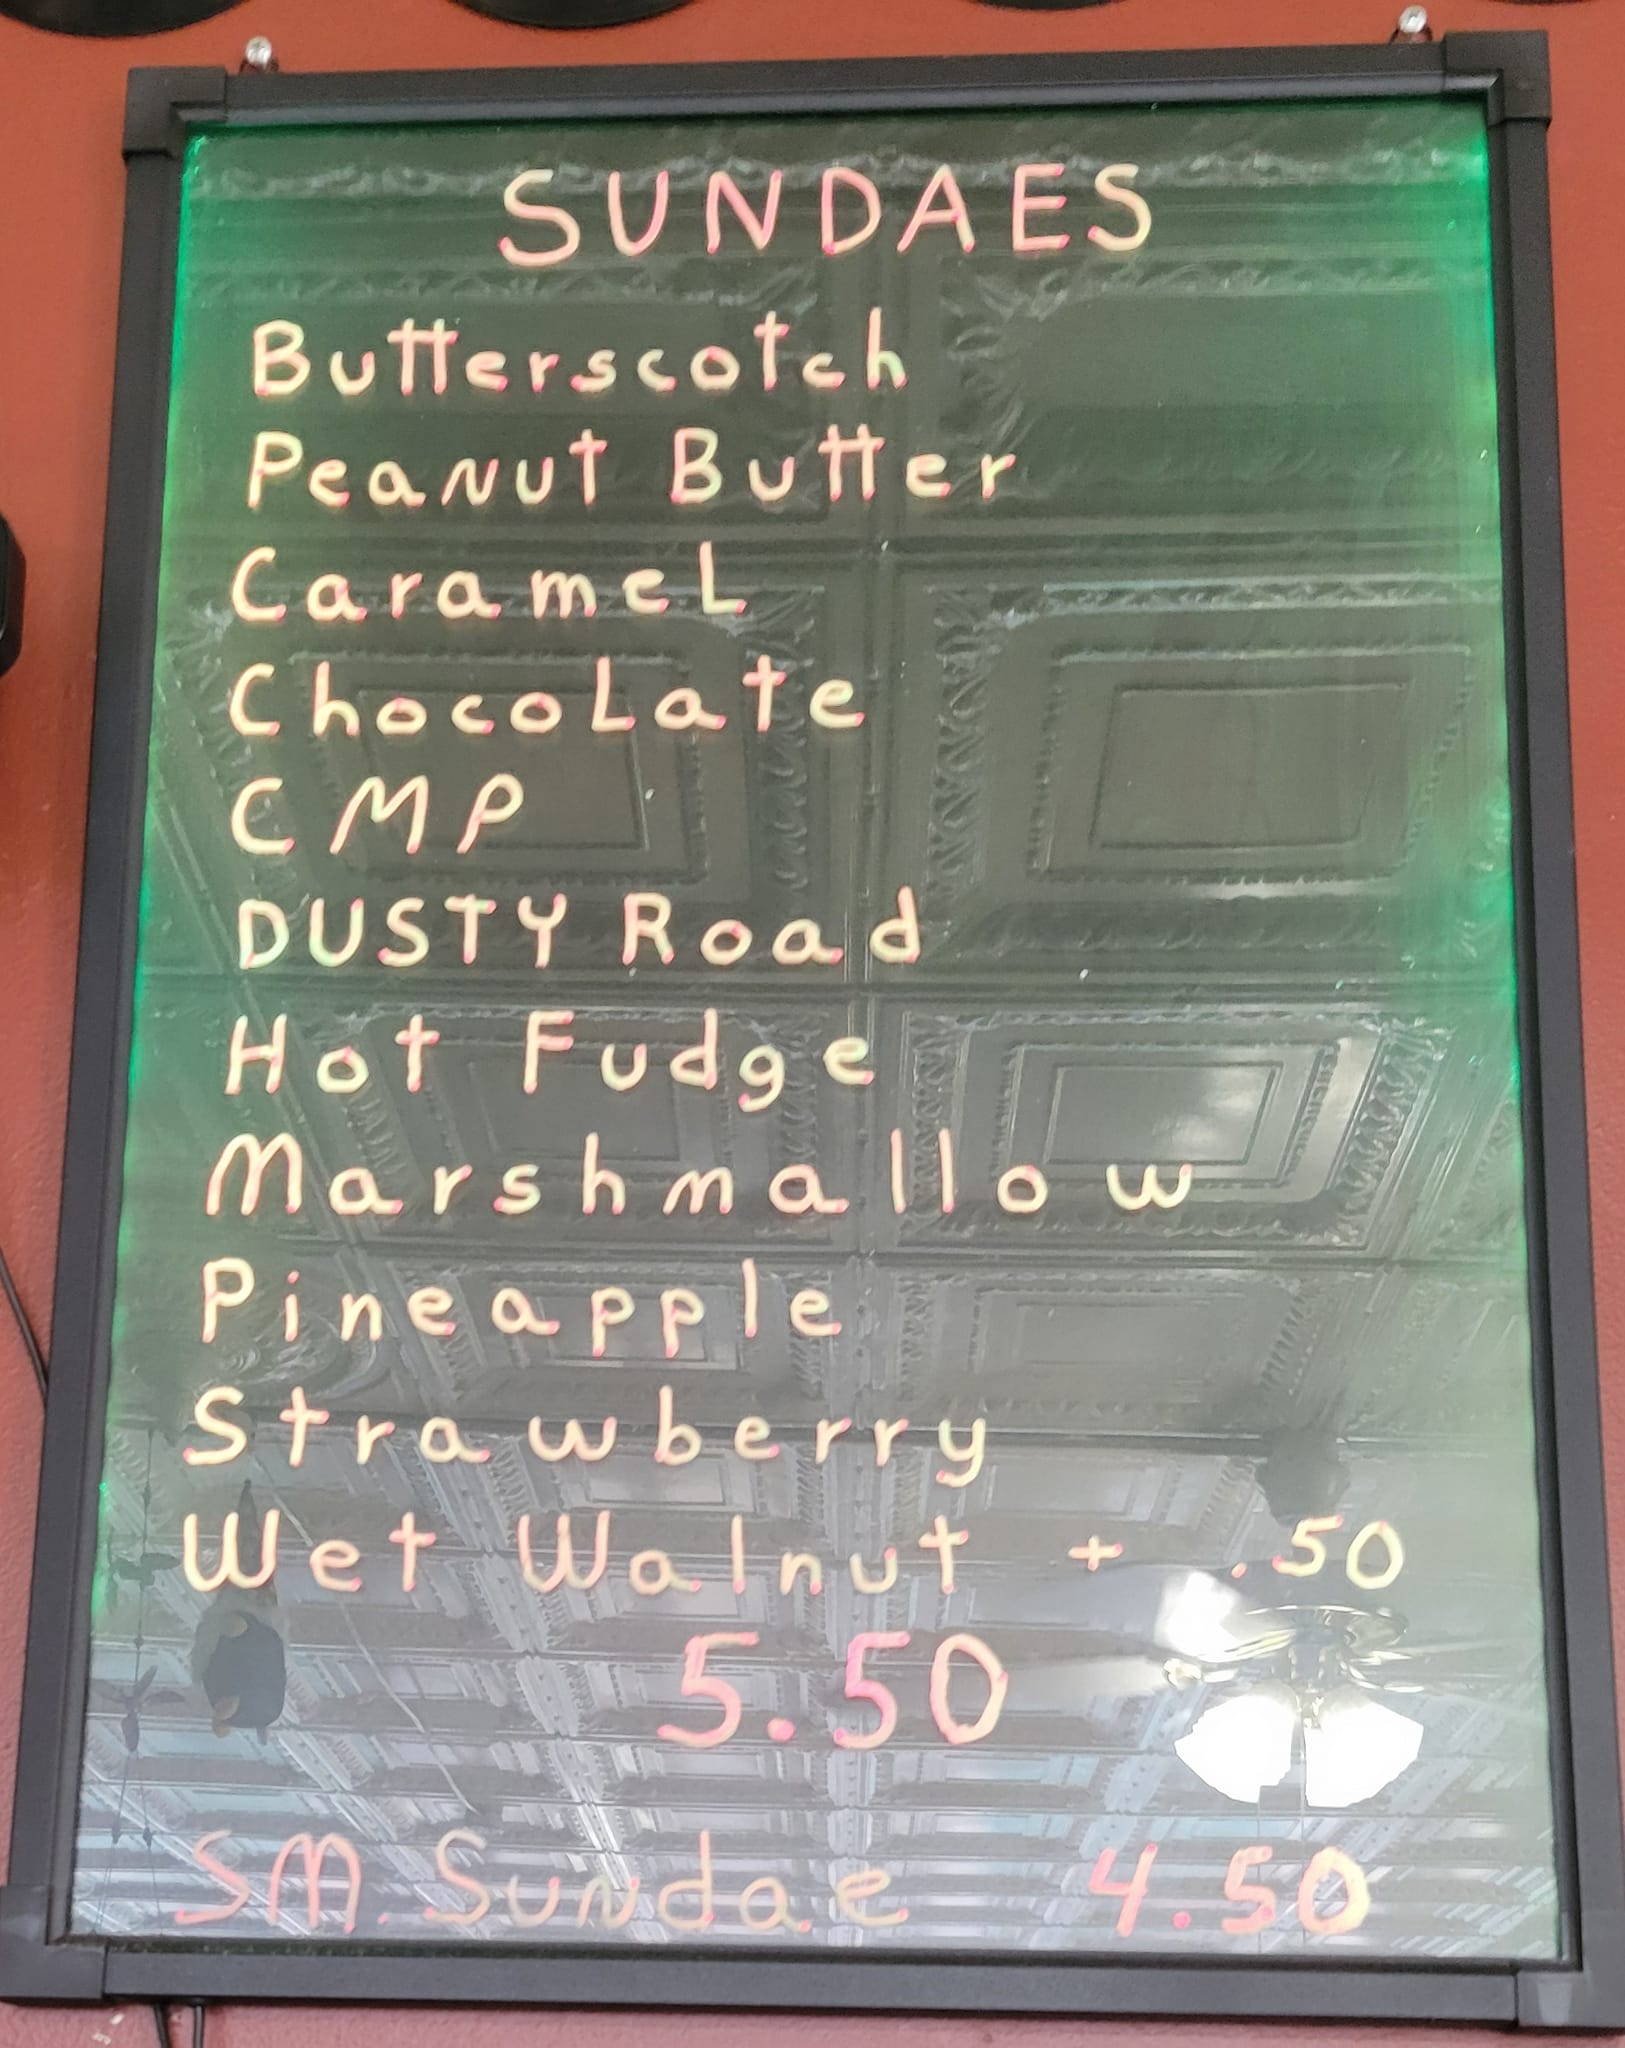 SUNDAES
Butterscotch
Peanut Butter
Caramel
Chocolate
CMP
DUSTY Road
Hot Fudge
Marshmallow
Pineapple
Strawberry
Wet Walnut + .50
5.50
SM. Sundae 4.50